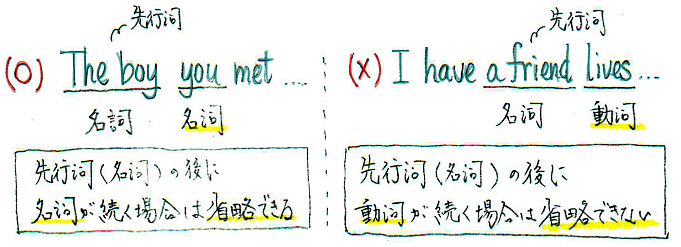 先行詞
(O) The boy you met ....
名詞 名詞
先行詞(名詞)の後に
名詞が続く場合は省略できる
先行詞
(X) I have a friend lives...
名詞 動詞
先行詞(名詞)の後に
動詞が続く場合は省略できない